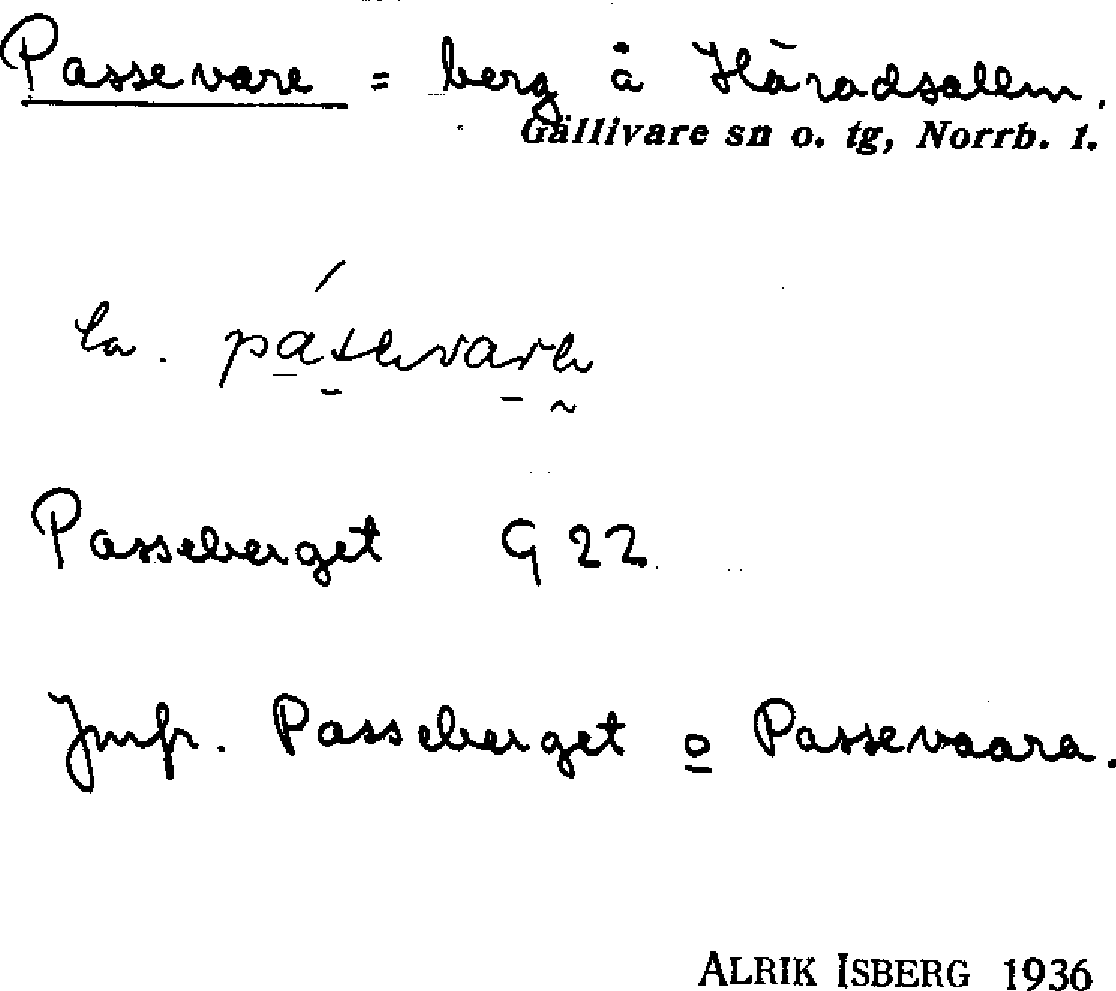 Passevare = berg å Häradsallm.
Gällivare sn o. tg, Norrb. l.
la.
Passeberget G 22
Jmfr. Passeberget o Passevaara.
ALRIK ISBERG 1936